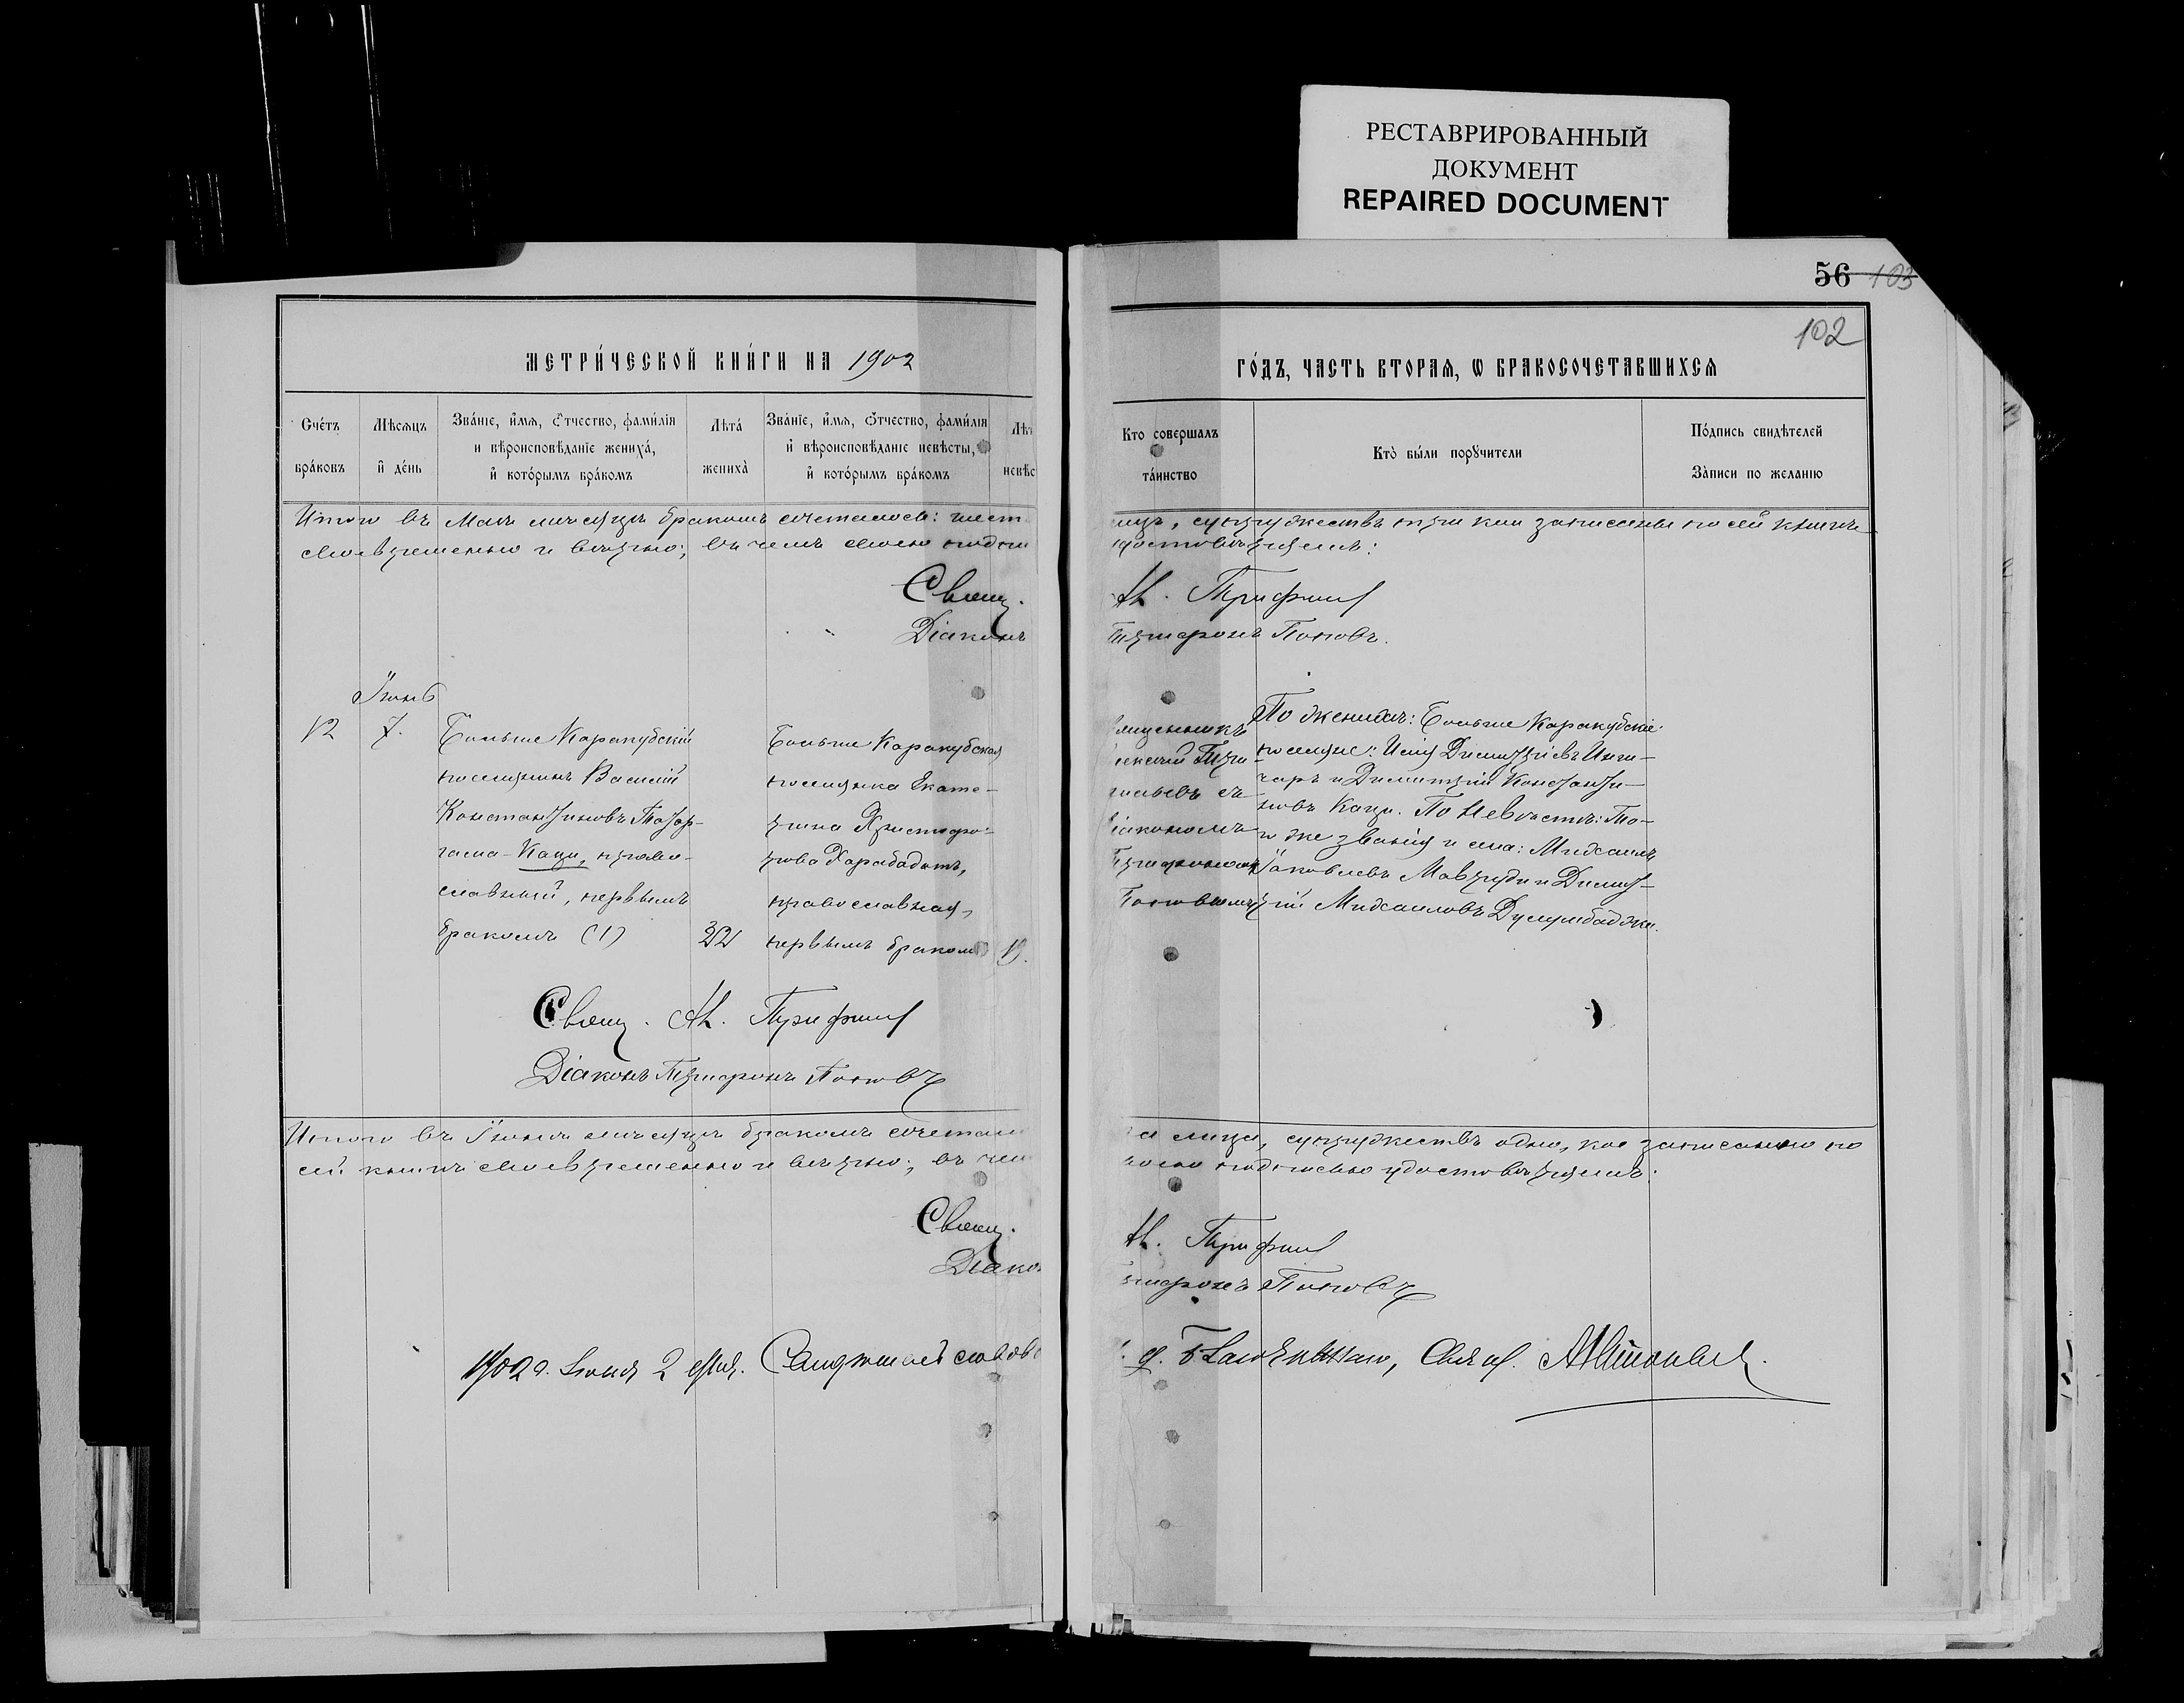 РЕСТАВРИРОВАННЫЙ
ДОКУМЕНТ
REPAIRED DOCUMENT
56 103
102
МЕТРИ́ЧЕСКОЙ КНИ́ГИ НА 1902
ГО́ДЪ, ЧАСТЬ ВТОРАЯ, Ѡ БРАКОСОЧЕТАВШИХСЯ
Сче́тъ
бра́ковъ
Мѣсяцъ
и҆ де́нь
Зва́нїе, и҆́мя, Ѻ҆́тчество, фами́лїя
и вѣроисповѣ́данїе жениха́,
и҆ кото́рымъ бра́комъ
Лѣта̀
жениха̀
Зва́нїе, и҆́мя, ѻ҆́тчество, фами́лїя
и҆ вѣроисповѣ́данїе невѣ́сты,
и҆ кото́рымъ бра́комъ
Лѣт
невѣс
Кто совершалъ
та́инство
Кто̀ бы́ли порꙋчители
По́дпись свидѣ́телей
За́писи по желанію
Итого въ Маѣ мѣсяцѣ бракомъ сочеталось: шест
своевременно и вѣрно; въ чемъ своею подпи
лицъ, супружествъ три кои записаны по сей книгѣ
достовѣряемъ:
Свящ.
Діаконъ
Ал. Трифил
Трифонъ Поповъ.
Іюнь
12 7.
Больше Каракубскій
поселянинъ Василій
Константиновъ Татар-
Каци, право-
славный, первымъ
бракомъ (1)
22
Больше Каракубская
поселянка Екате-
рина Христофо-
рова Харабадатъ,
православная,
первымъ бракомъ
19.
вященникъ
лексій Три
съ
діакономъ
Трифономъ
Поповымъ
По женихѣ: Больше Каракубскіе
поселяне: Илія Димитріевъ
и Димитрій Константи-
новъ Каци. По Невѣстѣ: То-
го же званія и села: Михаилъ
Іаковлевъ Мавроди и Димит-
рій Михаиловъ
Свящ. Ал. Трифил
Діаконъ Трифонъ Поповъ
Итого въ Іюнѣ мѣсяцѣ бракомъ сочетал
сей книгѣ своевременно и вѣрно; въ чем
ва лица, супружествъ одно, кое записанно по
воею подписью удостовѣряемъ:
Свящ.
Діако
Ал. Трифил
рифонъ Поповъ
1902 г. Іюля 2 дня.